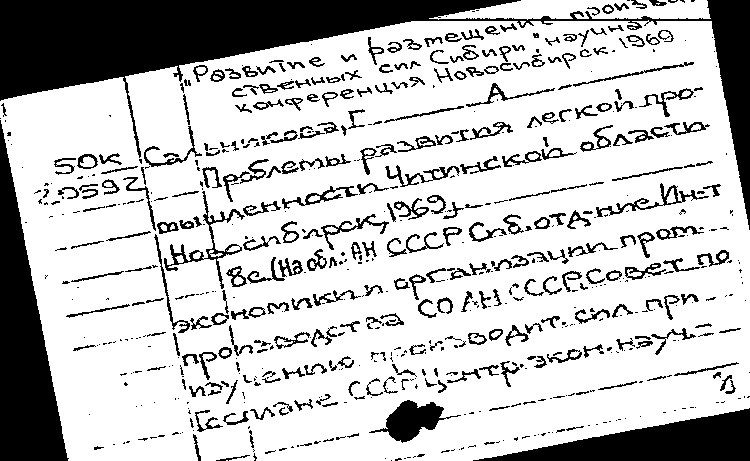 "Развитие и размещение произв
ственных сил Сибири", научная
конференция, Новосибирск. 1969
50К Сальникова, Г А
20592 Проблемы развития легкой про-
мышленности Читинской области
[Новосибирск, 1969].
8с. (На обл.: АН СССР Сиб. отд-ние. Ин-т
экономики и организации пром.
производства СО АН СССР, Совет по
изучению производит. сил при
Госплане СССР, Центр. экон. науч.-